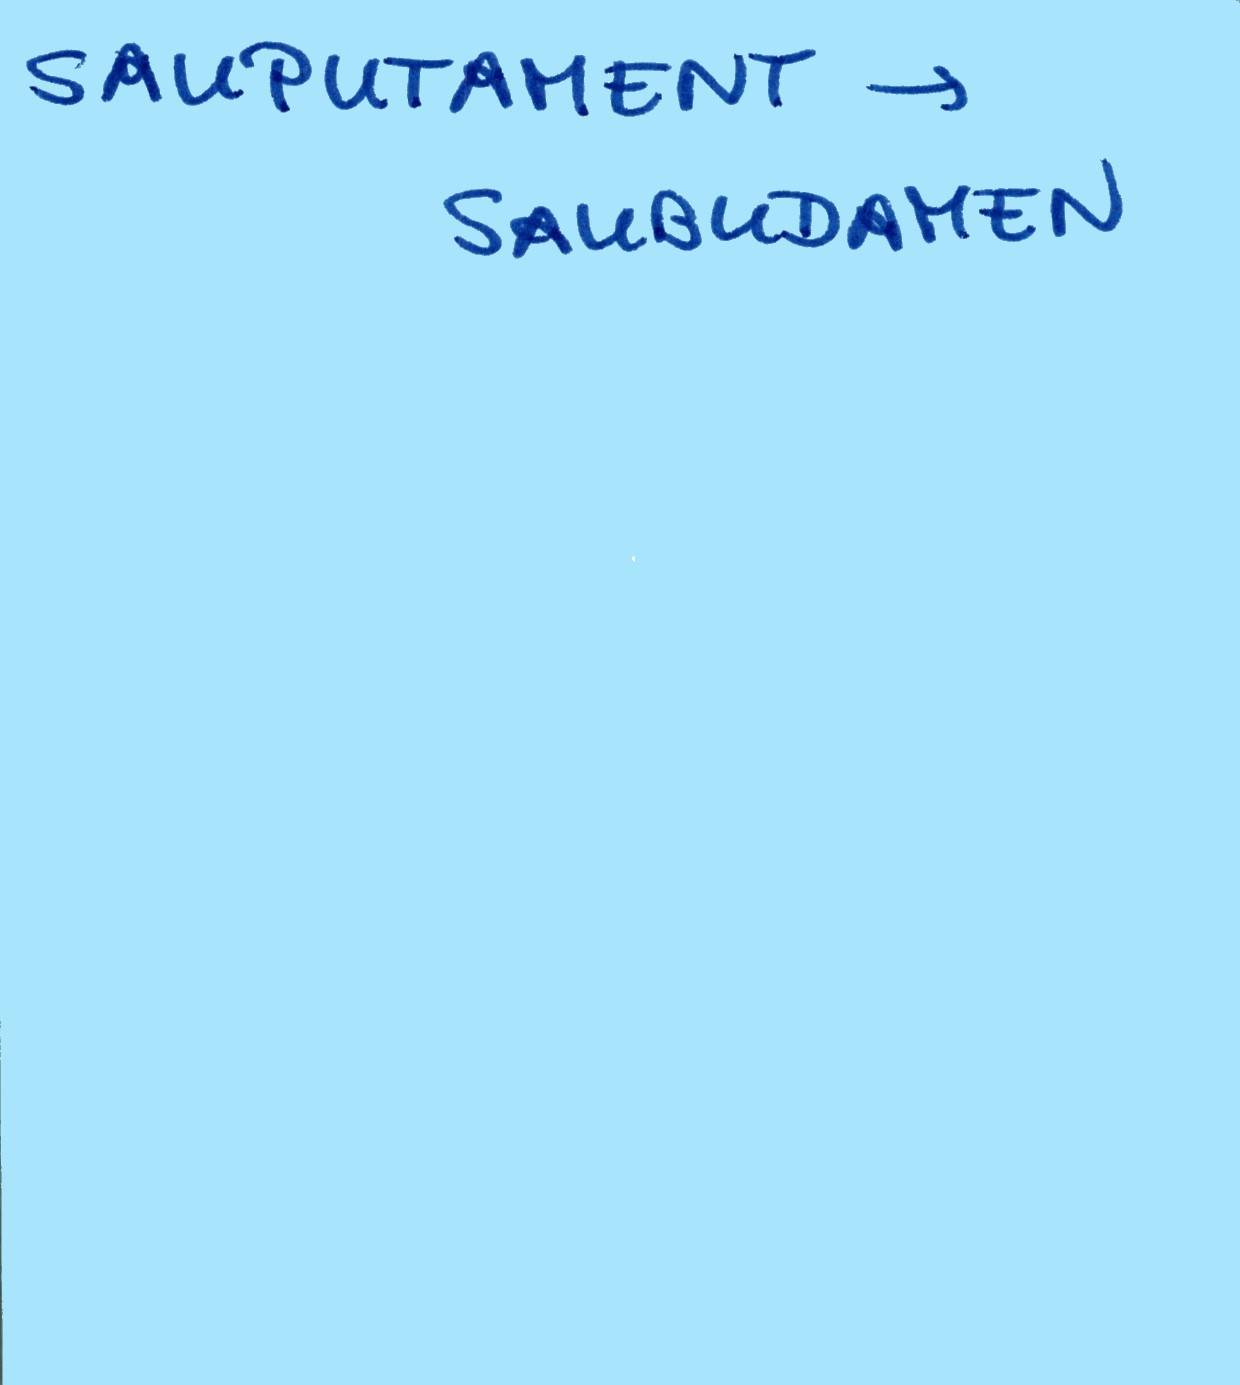 SAUPUTAMENT →
SAUBUDAMEN